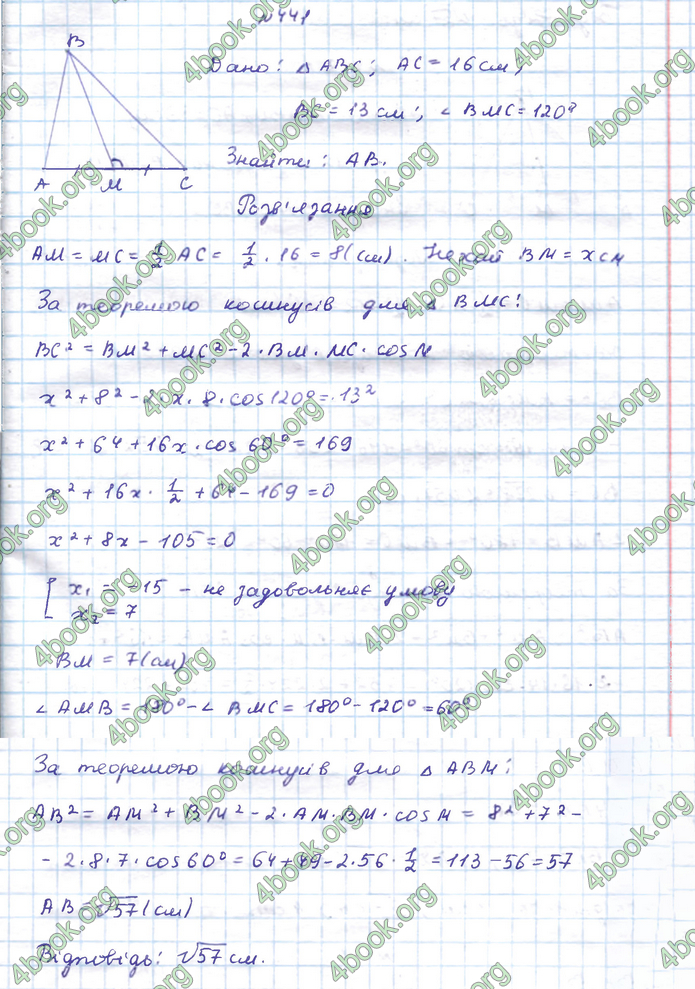 № 441
B
A M C
Дано: △ ABC; AC = 16 см,
BC = 13 см; ∠ BMC = 120°
Знайти: AB.
Розв'язання
AM = MC = 1/2 AC = 1/2 · 16 = 8 (см). Нехай BM = x см
За теоремою косинусів для △ BMC:
BC² = BM² + MC² - 2 · BM · MC · cos M
x² + 8² - 2 · x · 8 · cos 120° = 13²
x² + 64 + 16x · cos 60° = 169
x² + 16x · 1/2 + 64 - 169 = 0
x² + 8x - 105 = 0
[ x₁ = -15 - не задовольняє умову
x₂ = 7
BM = 7 (см)
∠ AMB = 180° - ∠ BMC = 180° - 120° = 60°
За теоремою косинусів для △ ABM:
AB² = AM² + BM² - 2 · AM · BM · cos M = 8² + 7² -
- 2 · 8 · 7 · cos 60° = 64 + 49 - 2 · 56 · 1/2 = 113 - 56 = 57
AB = √57 (см)
Відповідь: √57 см.
4book.org